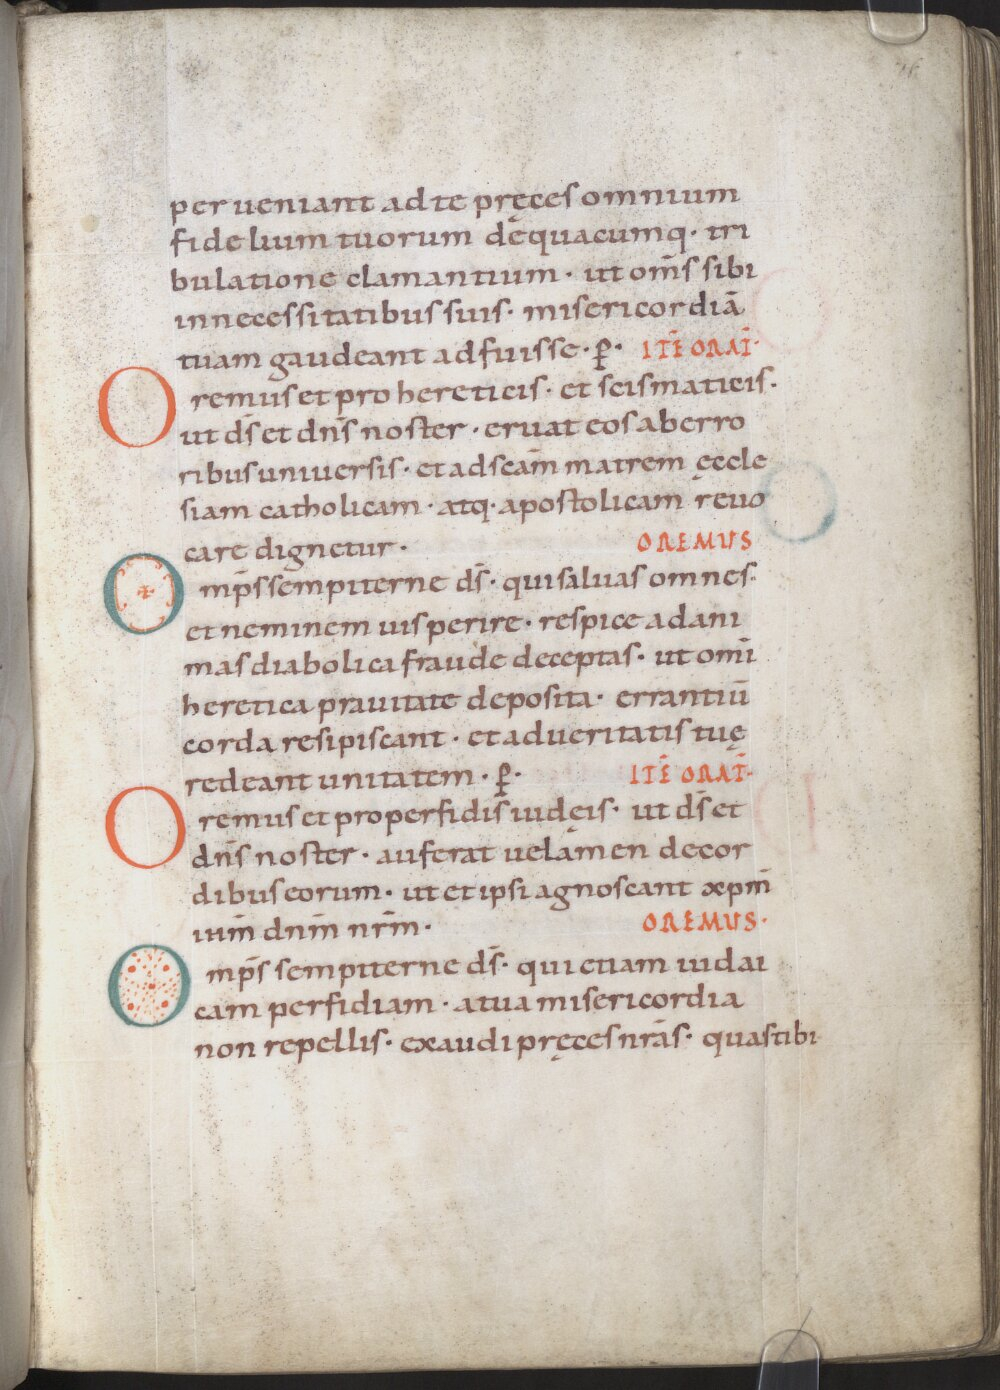 perueniant ad te pręces omnium
fidelium tuorum de quacumq· tri
bulatione clamantium · ut om̄s sibi
in necessitatibus suis · misericordiā
tuam gaudeant adfuisse · p̱ · ITĒ ORAT̄·
Oremus et pro hereticis · et scismaticis ·
ut d̄s et dn̄s noster · eruat eos ab erro
ribus uniuersis · et ad scam̄ matrem ęccle
siam catholicam · atq· apostolicam reuo
care dignetur · OREMUS
Omp̄s sempiterne d̄s · qui saluas omnes·
et neminem uis perire · respice ad ani
mas diabolica fraude deceptas · ut omī
heretica prauitate deposita · errantiū
corda resipiscant · et ad ueritatis tuę
redeant unitatem · p̱ · ITĒ ORAT̄·
Oremus et pro perfidis iudęis · ut d̄s et
dn̄s noster · auferat uelamen de cor
dibus eorum · ut et ipsi agnoscant xp̄m
ium̄ dnm̄ nrm̄ · OREMUS·
Omp̄s sempiterne d̄s · qui etiam iudai
cam perfidiam · a tua misericordia
non repellis · exaudi pręces nrās · quas tibi